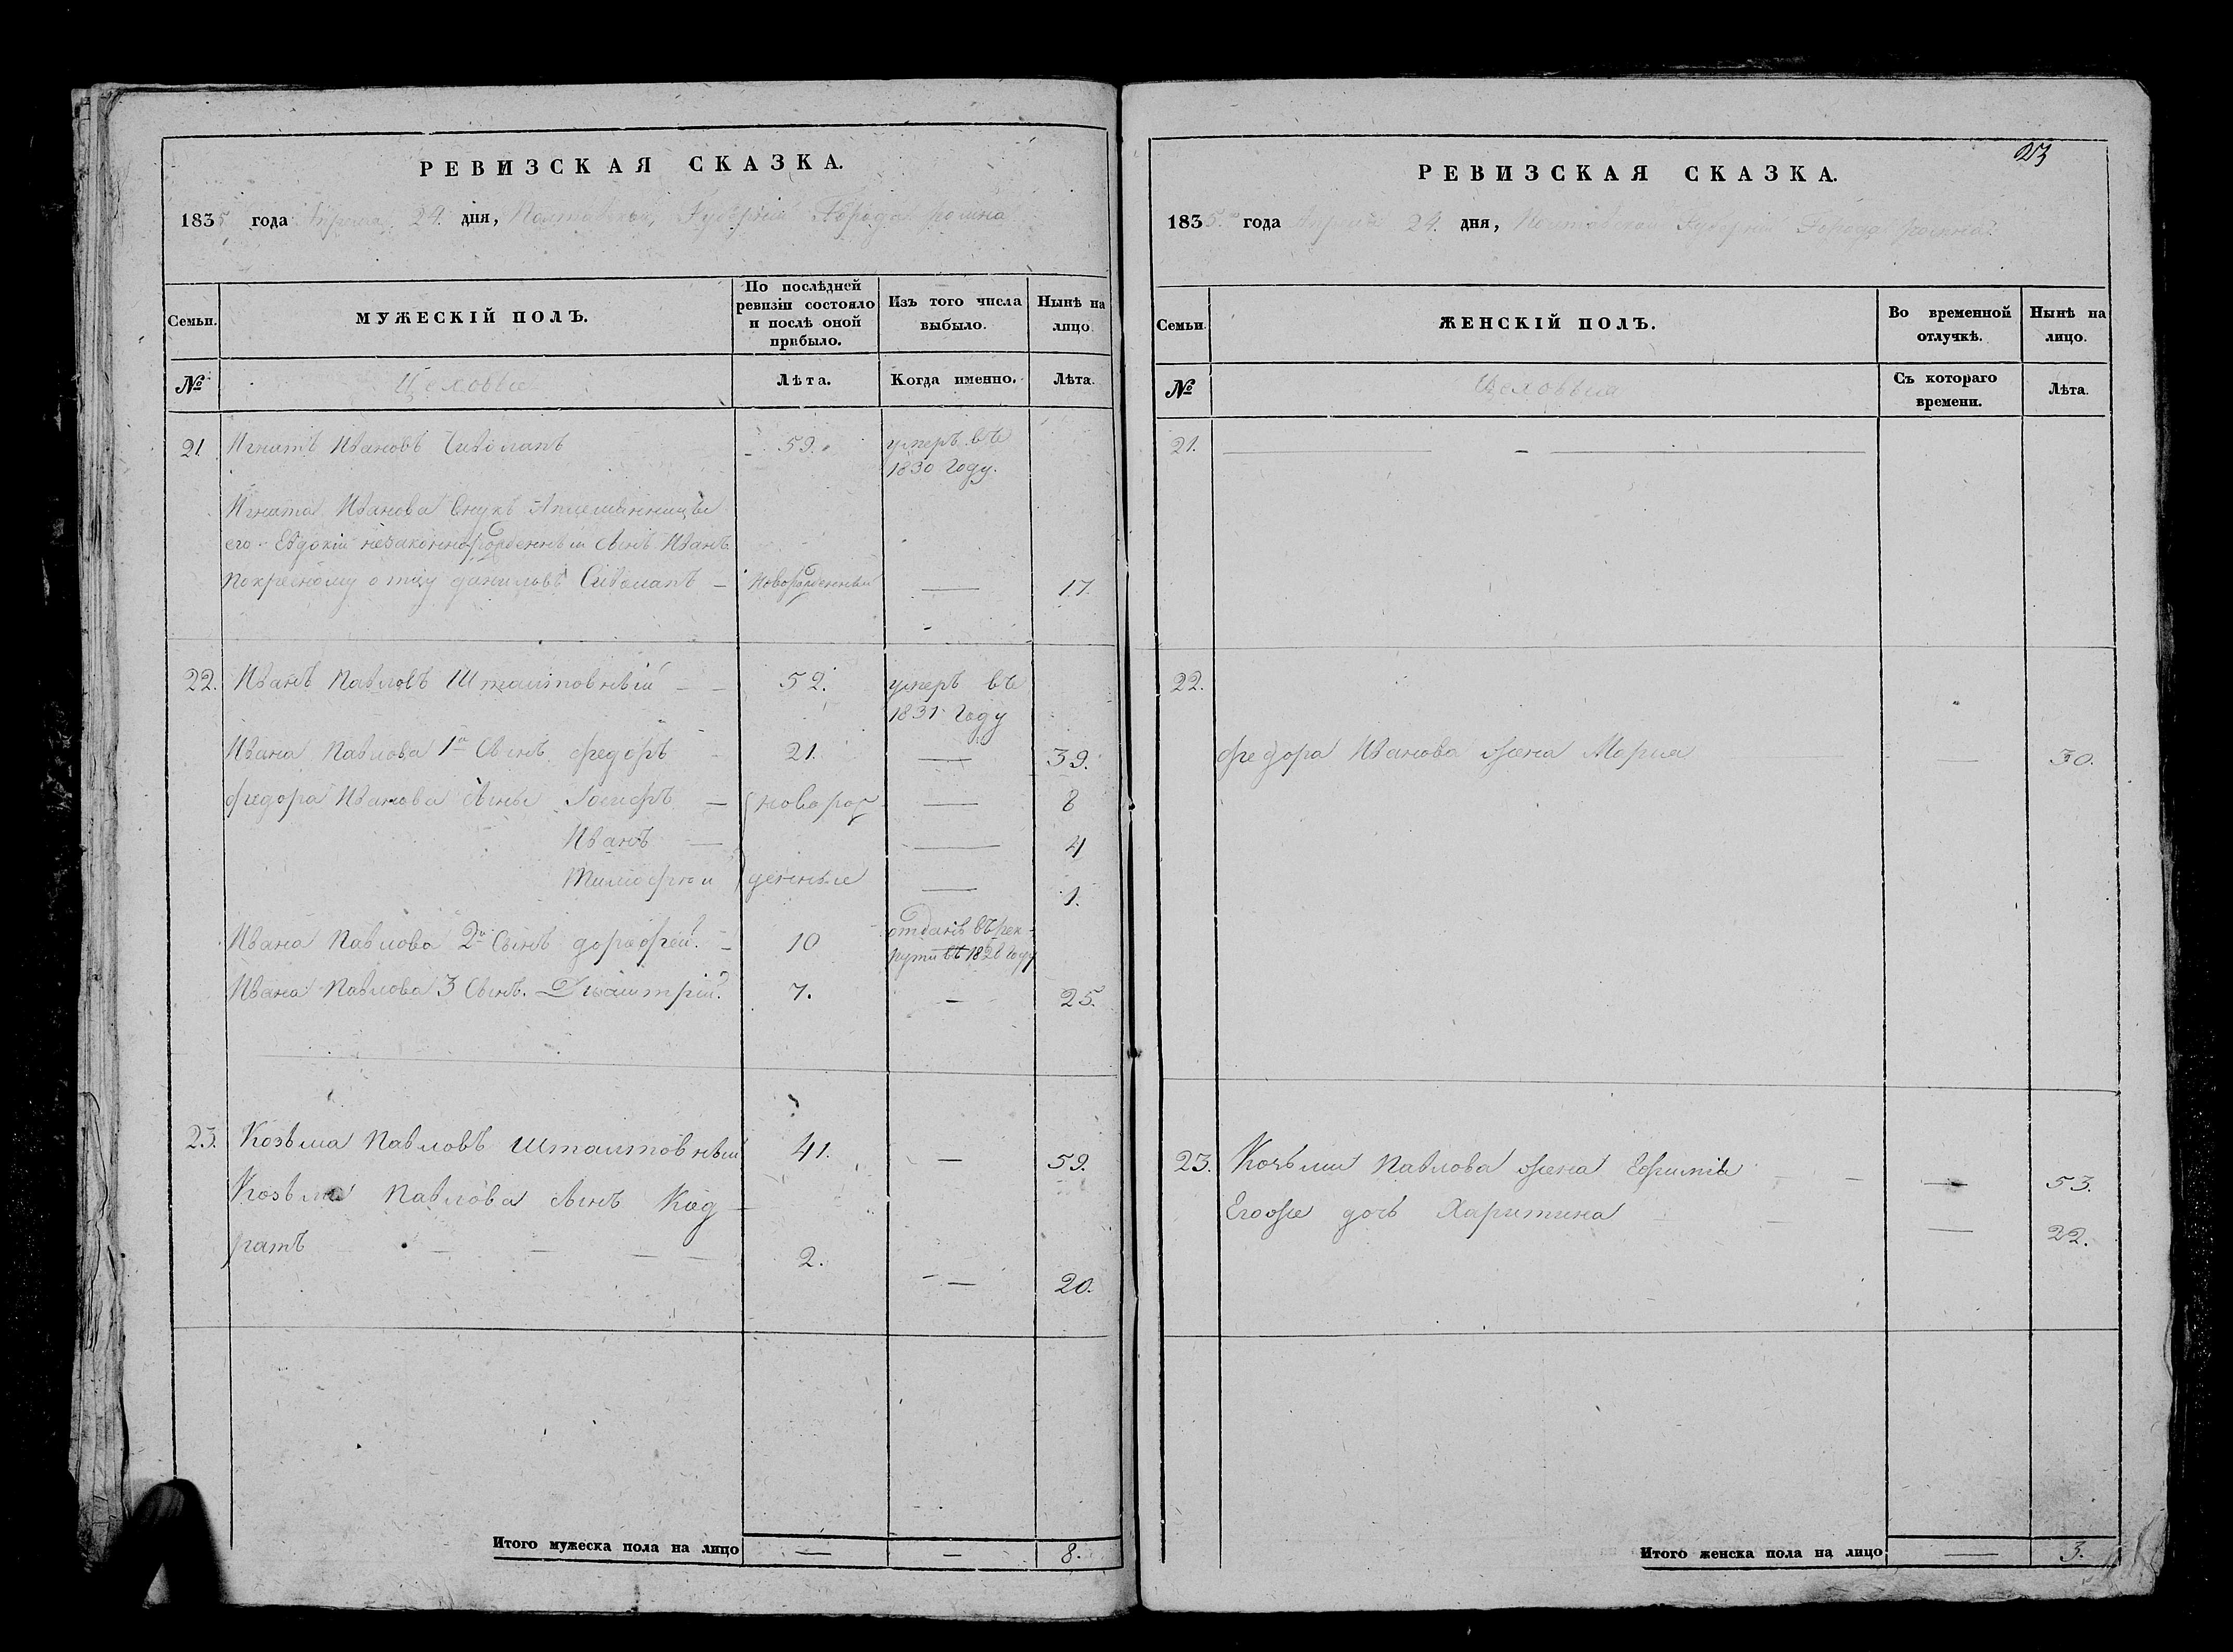 РЕВИЗСКАЯ СКАЗКА.
1835 года Апреля 24. дня, Полтавской Губернии Города Ромна
Семьи.
МУЖЕСКІЙ ПОЛЪ.
По послѣдней ревизіи состояло и послѣ оной прибыло.
Изъ того числа выбыло.
Нынѣ на лицо.
№
Цеховые
Лѣта.
Когда именно.
Лѣта.
21 Игнатъ Ивановъ 59. умеръ въ
1830 году.
Игната Иванова внукъ
его Евдокіи незаконнорожденный сынъ Иванъ
по крестному отцу Даниловъ — новорожденный — 17.
22. Иванъ Павловъ — — 52. умеръ въ
1831 году
Ивана Павлова 1й сынъ федоръ — 21. — 39.
федора Иванова сыны Іосифъ — новорож — 8
Иванъ — — 4
Тимофей денные — 1.
Ивана Павлова 2й сынъ дорофей. — 10 отданъ въ рек-
руты въ 1828 году
Ивана Павлова 3 сынъ. Дмитрій. 7. — 25.
23. Козьма Павловъ 41. — 59.
Козьмы Павлова сынъ Код-
ратъ — — — — 2. — 20.
Итого мужеска пола на лицо — — 8.
23
РЕВИЗСКАЯ СКАЗКА.
1835.го года Апреля 24. дня, Полтавской Губерніи Города Ромна.
Семьи.
ЖЕНСКІЙ ПОЛЪ.
Во временной отлучкѣ.
Нынѣ на лицо.
№
Цеховыя
Съ котораго времени.
Лѣта.
21. — — —
22.
федора Иванова жена Мария — 30.
23. Козьмы Павлова жена Ефимія — — 53.
Егоже дочь Харитина — — 22.
Итого женска пола на лицо — 3.